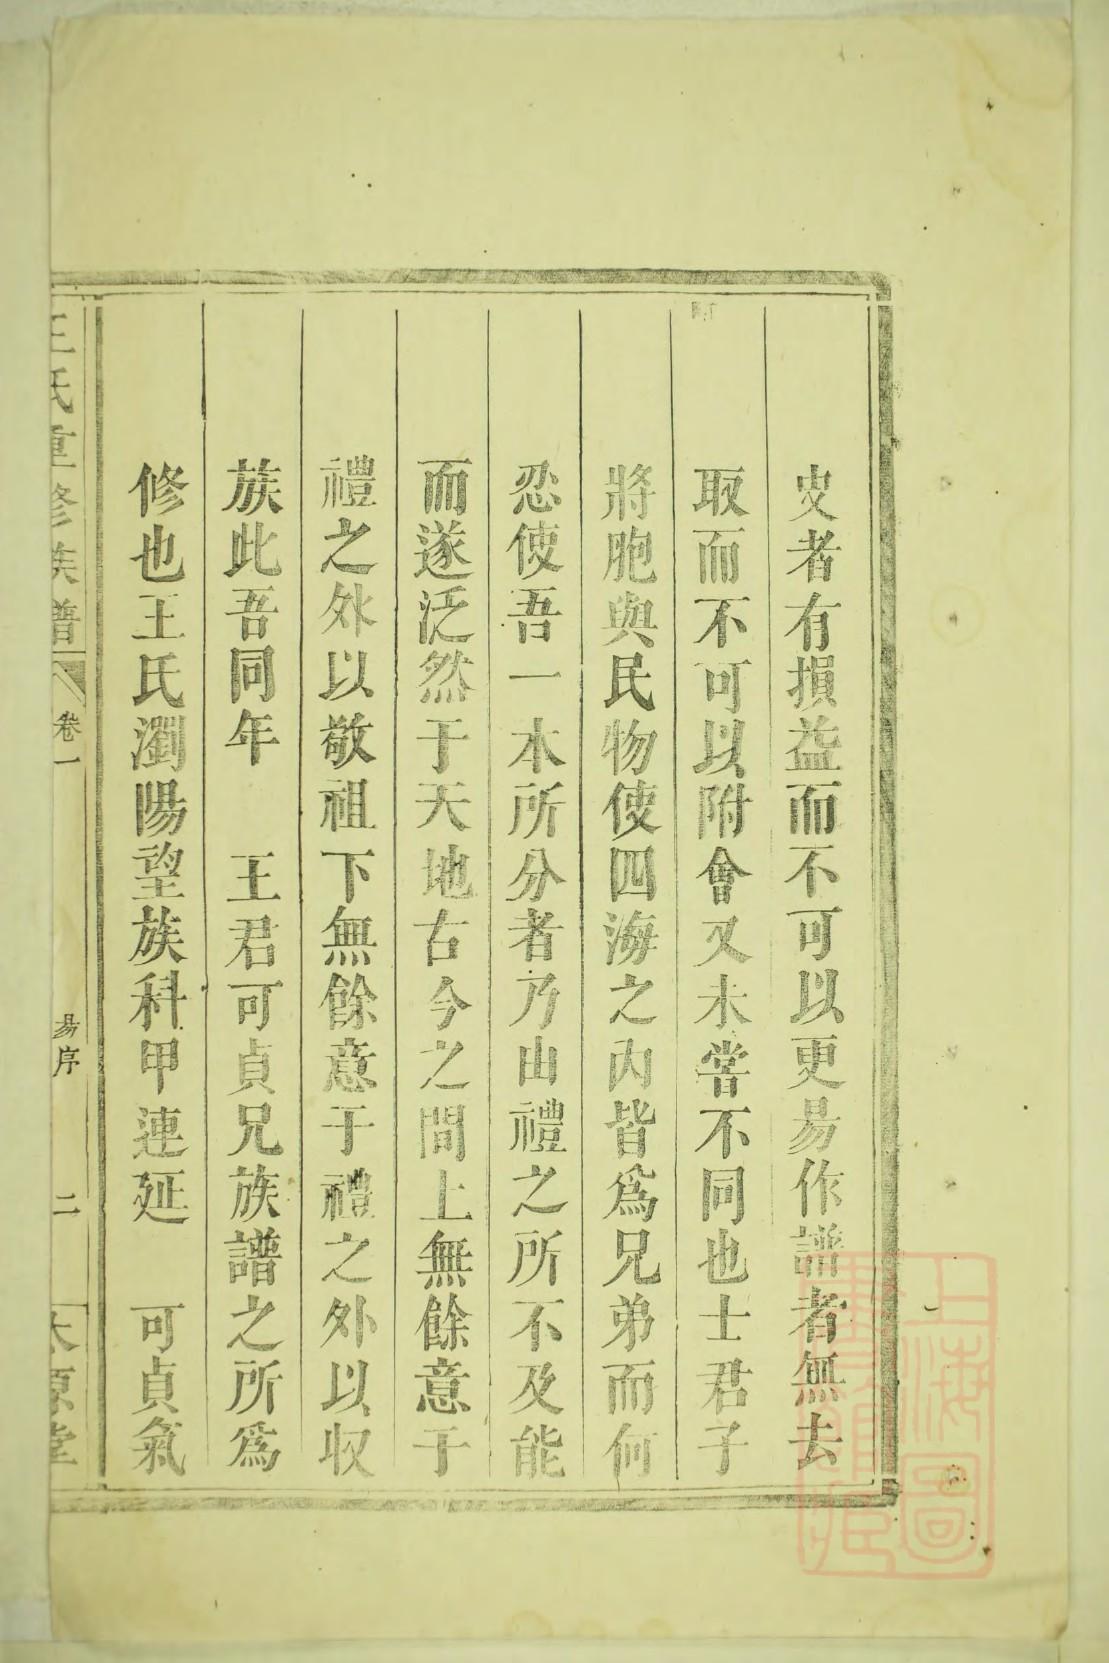 史者有損益而不可以更易作譜者無去
取而不可以附會又未嘗不同也士君子
將胞與民物使四海之內皆爲兄弟而何
忍使吾一本所分者乃由禮之所不及能
而遂泛然于天地古今之間上無餘意于
禮之外以敬祖下無餘意于禮之外以收
族此吾同年　王君可貞兄族譜之所爲
修也王氏瀏陽望族科甲連延　可貞氣
王氏重修族譜　卷一　易序　二　太原堂
上海圖
書館藏